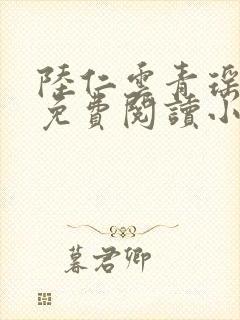 陸仁雲青瑤
免費閱讀小
暮君卿